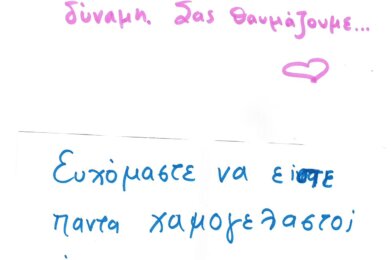 δύναμη. Σας θαυμάζουμε...
Ευχόμαστε να είστε
παντα χαμογελαστοί